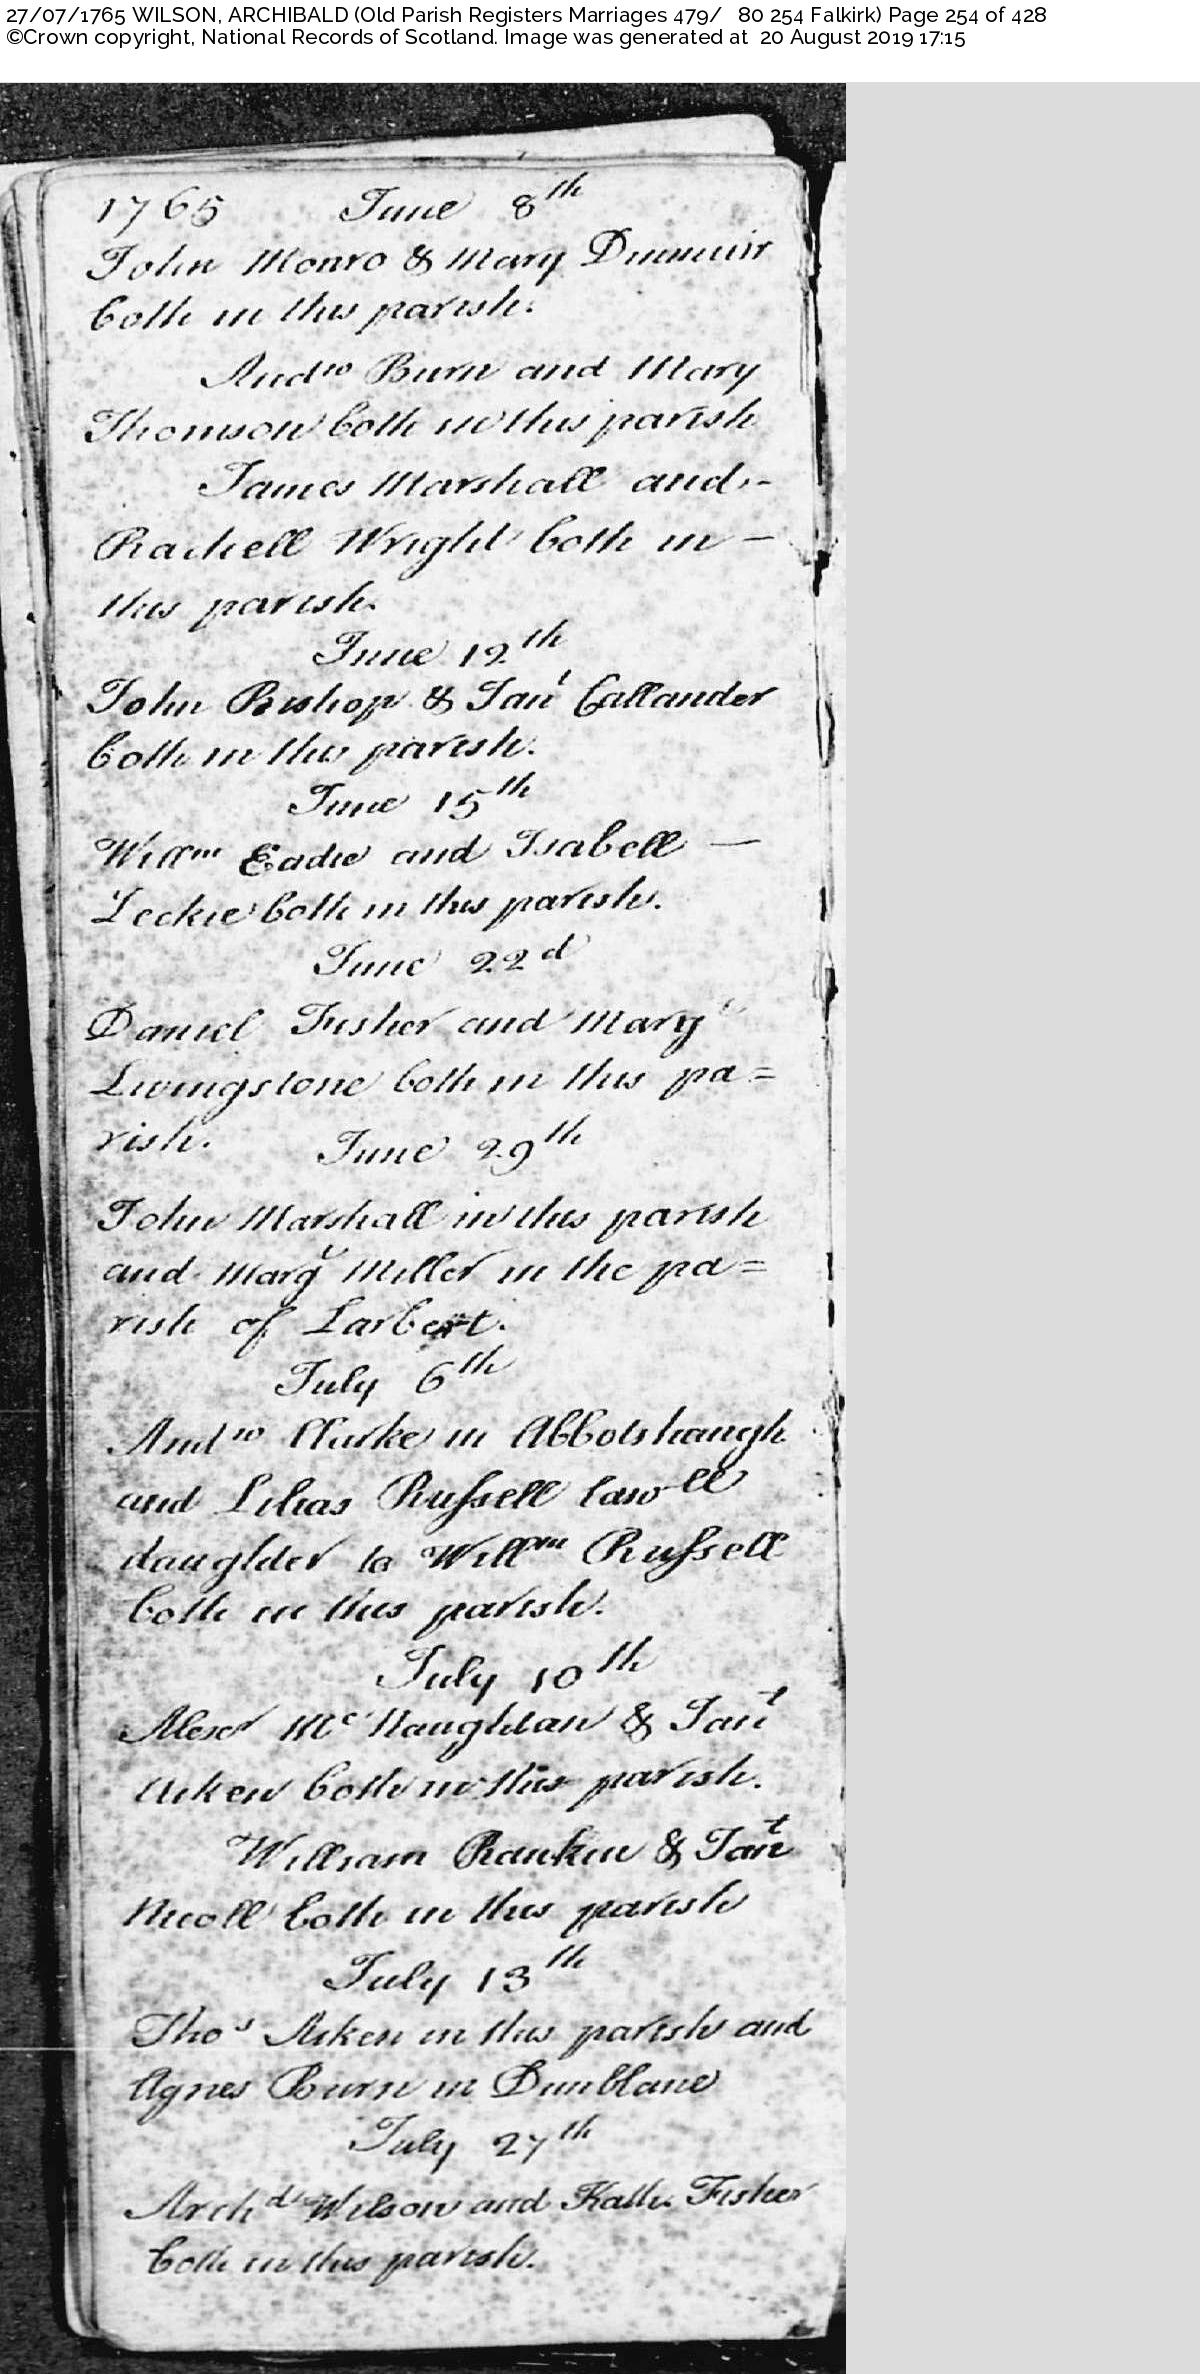 27/07/1765 WILSON, ARCHIBALD (Old Parish Registers Marriages 479/ 80 254 Falkirk) Page 254 of 428
©Crown copyright, National Records of Scotland. Image was generated at 20 August 2019 17:15
1765 June 8th
John Monro & Mary
both in this parish.
Andw Burn and Mary
Thomson both in this parish
James Marshall and -
Rachell Wright both in -
this parish.
June 12th
John Bishop & Jant Callander
both in this parish.
June 15th
Willm Eadie and Isabell —
Leckie both in this parish.
June 22d
Daniel Fisher and Mary
Livingstone both in this pa=
rish. June 29th
John Marshall in this parish
and Margt Miller in the pa=
rish of Larbert.
July 6th
Andw Clarke in Abbotshaugh
and Lilias Russell lawll
daughter to Willm Russell
both in this parish.
July 10th
Alexr McNaughtan & Jant
Aiken both in this parish.
William Rankin & Jant
Nicoll both in this parish
July 13th
Thos Aiken in this parish and
Agnes Burn in Dunblane
July 27th
Archd Wilson and Kathe. Fisher
both in this parish.